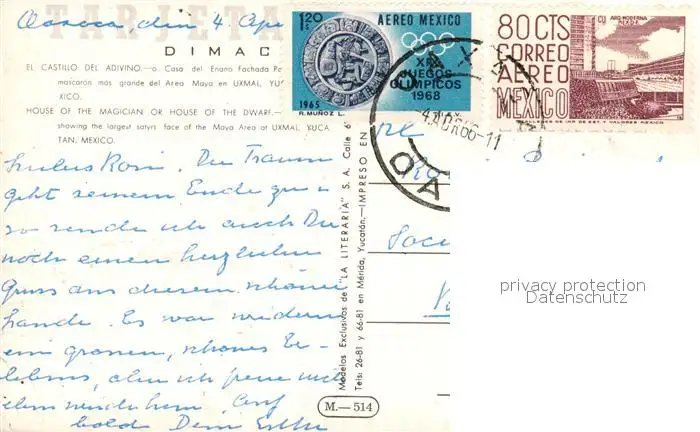 TARJETA
Oaxaca, den 4 Apr
DIMAC
EL CASTILLO DEL ADIVINO.—o Casa del Enano Fachada Po
mascarón más grande del Area Maya en UXMAL, YUC
XICO.
HOUSE OF THE MAGICIAN OR HOUSE OF THE DWARF.—
showing the largest satyrs face of the Maya Area at UXMAL, YUCA
TAN, MEXICO.
Liebes Rosi. Der Traum
geht seinem Ende zu
so sende ich auch Dir
noch einen herzlichen
Gruss aus diesem schönen
Lande. Es war wiederum
ein grosses, schönes Er-
lebnis, aber ich freue mich
eben wieder heim. Auf
bald Dein
M.—514
Modelos Exclusivos de "LA LITERARIA" S. A. Calle 6
Tels: 26-81 y 66-81 en Mérida, Yucatán.—IMPRESO EN
1.20
AEREO MEXICO
XIX
JUEGOS
OLIMPICOS
1968
1965
R. MUÑOZ L.
80 CTS
CORREO
AEREO
MEXICO
ARQ MODERNA
MEXICO
OAX
privacy protection
Datenschutz